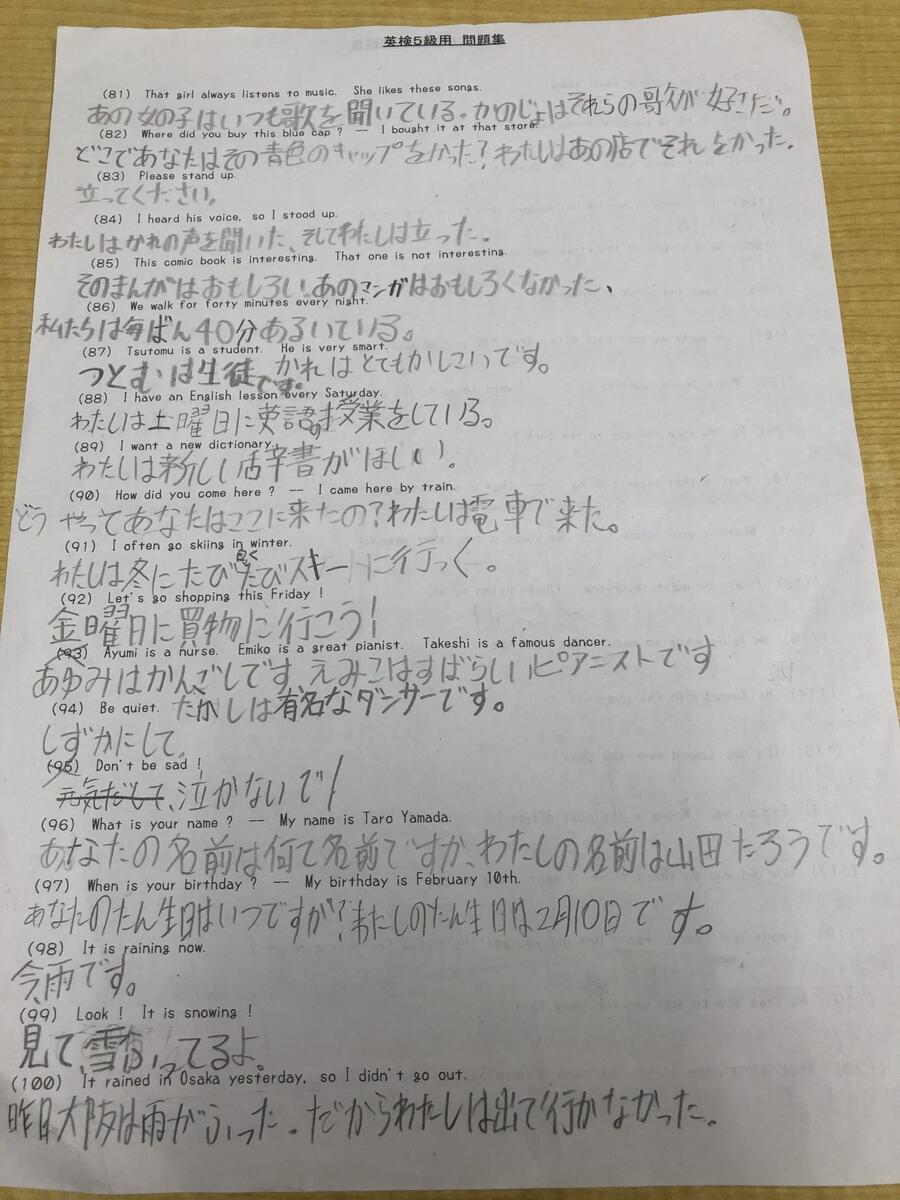 英検5級用 問題集
(81) That girl always listens to music. She likes these songs.
あの女の子はいつも歌を聞いている。かのじょはそれらの歌が好きだ。
(82) Where did you buy this blue cap ? -- I bought it at that store.
どこであなたはその青色のキャップをかった?わたしはあの店でそれをかった。
(83) Please stand up.
立ってください。
(84) I heard his voice, so I stood up.
わたしはかれの声を聞いた、そしてわたしは立った。
(85) This comic book is interesting. That one is not interesting.
そのまんがはおもしろい。あのマンガはおもしろくなかった、
(86) We walk for forty minutes every night.
私たちは毎ばん40分あるいている。
(87) Tsutomu is a student. He is very smart.
つとむは生徒です。かれはとてもかしこいです。
(88) I have an English lesson every Saturday.
わたしは土曜日に英語の授業をしている。
(89) I want a new dictionary.
わたしは新しい辞書がほしい。
(90) How did you come here ? -- I came here by train.
どうやってあなたはここに来たの?わたしは電車で来た。
(91) I often go skiing in winter.
わたしは冬にたびたびスキーに行っく。
(92) Let's go shopping this Friday !
金曜日に買物に行こう!
(93) Ayumi is a nurse. Emiko is a great pianist. Takeshi is a famous dancer.
あゆみはかんごしです、えみこはすばらしいピアニストです
(94) Be quiet. たかしは有名なダンサーです。
しずかにして。
(95) Don't be sad !
元気だして、泣かないで!
(96) What is your name ? -- My name is Taro Yamada.
あなたの名前は何て名前ですか、わたしの名前は山田たろうです。
(97) When is your birthday ? -- My birthday is February 10th.
あなたのたん生日はいつですか?わたしのたん生日は2月10日です。
(98) It is raining now.
今、雨です。
(99) Look ! It is snowing !
見て、雪ふってるよ。
(100) It rained in Osaka yesterday, so I didn't go out.
昨日、大阪は雨がふった。だからわたしは出て行かなかった。